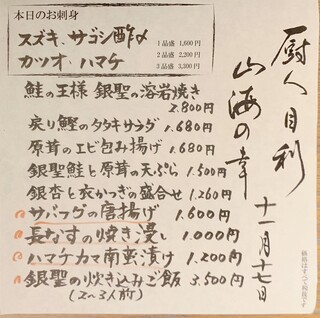 厨人目利
山海の幸
十一月十七日
本日のお刺身
スズキ、サゴシ酢〆
カツオ、ハマチ
1品盛 1,600円
2品盛 2,200円
3品盛 3,300円
鮭の王様 銀聖の溶岩焼き
2.800円
戻り鰹のタタキサラダ 1.680円
原茸のエビ包み揚げ 1.680円
銀聖鮭と原茸の天ぷら 1.500円
銀杏と衣かつぎの盛合せ 1.260円
サバフグの唐揚げ 1.600円
長なすの焼き浸し 1.000円
ハマチカマ南蛮漬け 1.200円
銀聖の炊き込みご飯 3.500円
(2〜3人前)
価格はすべて税抜です